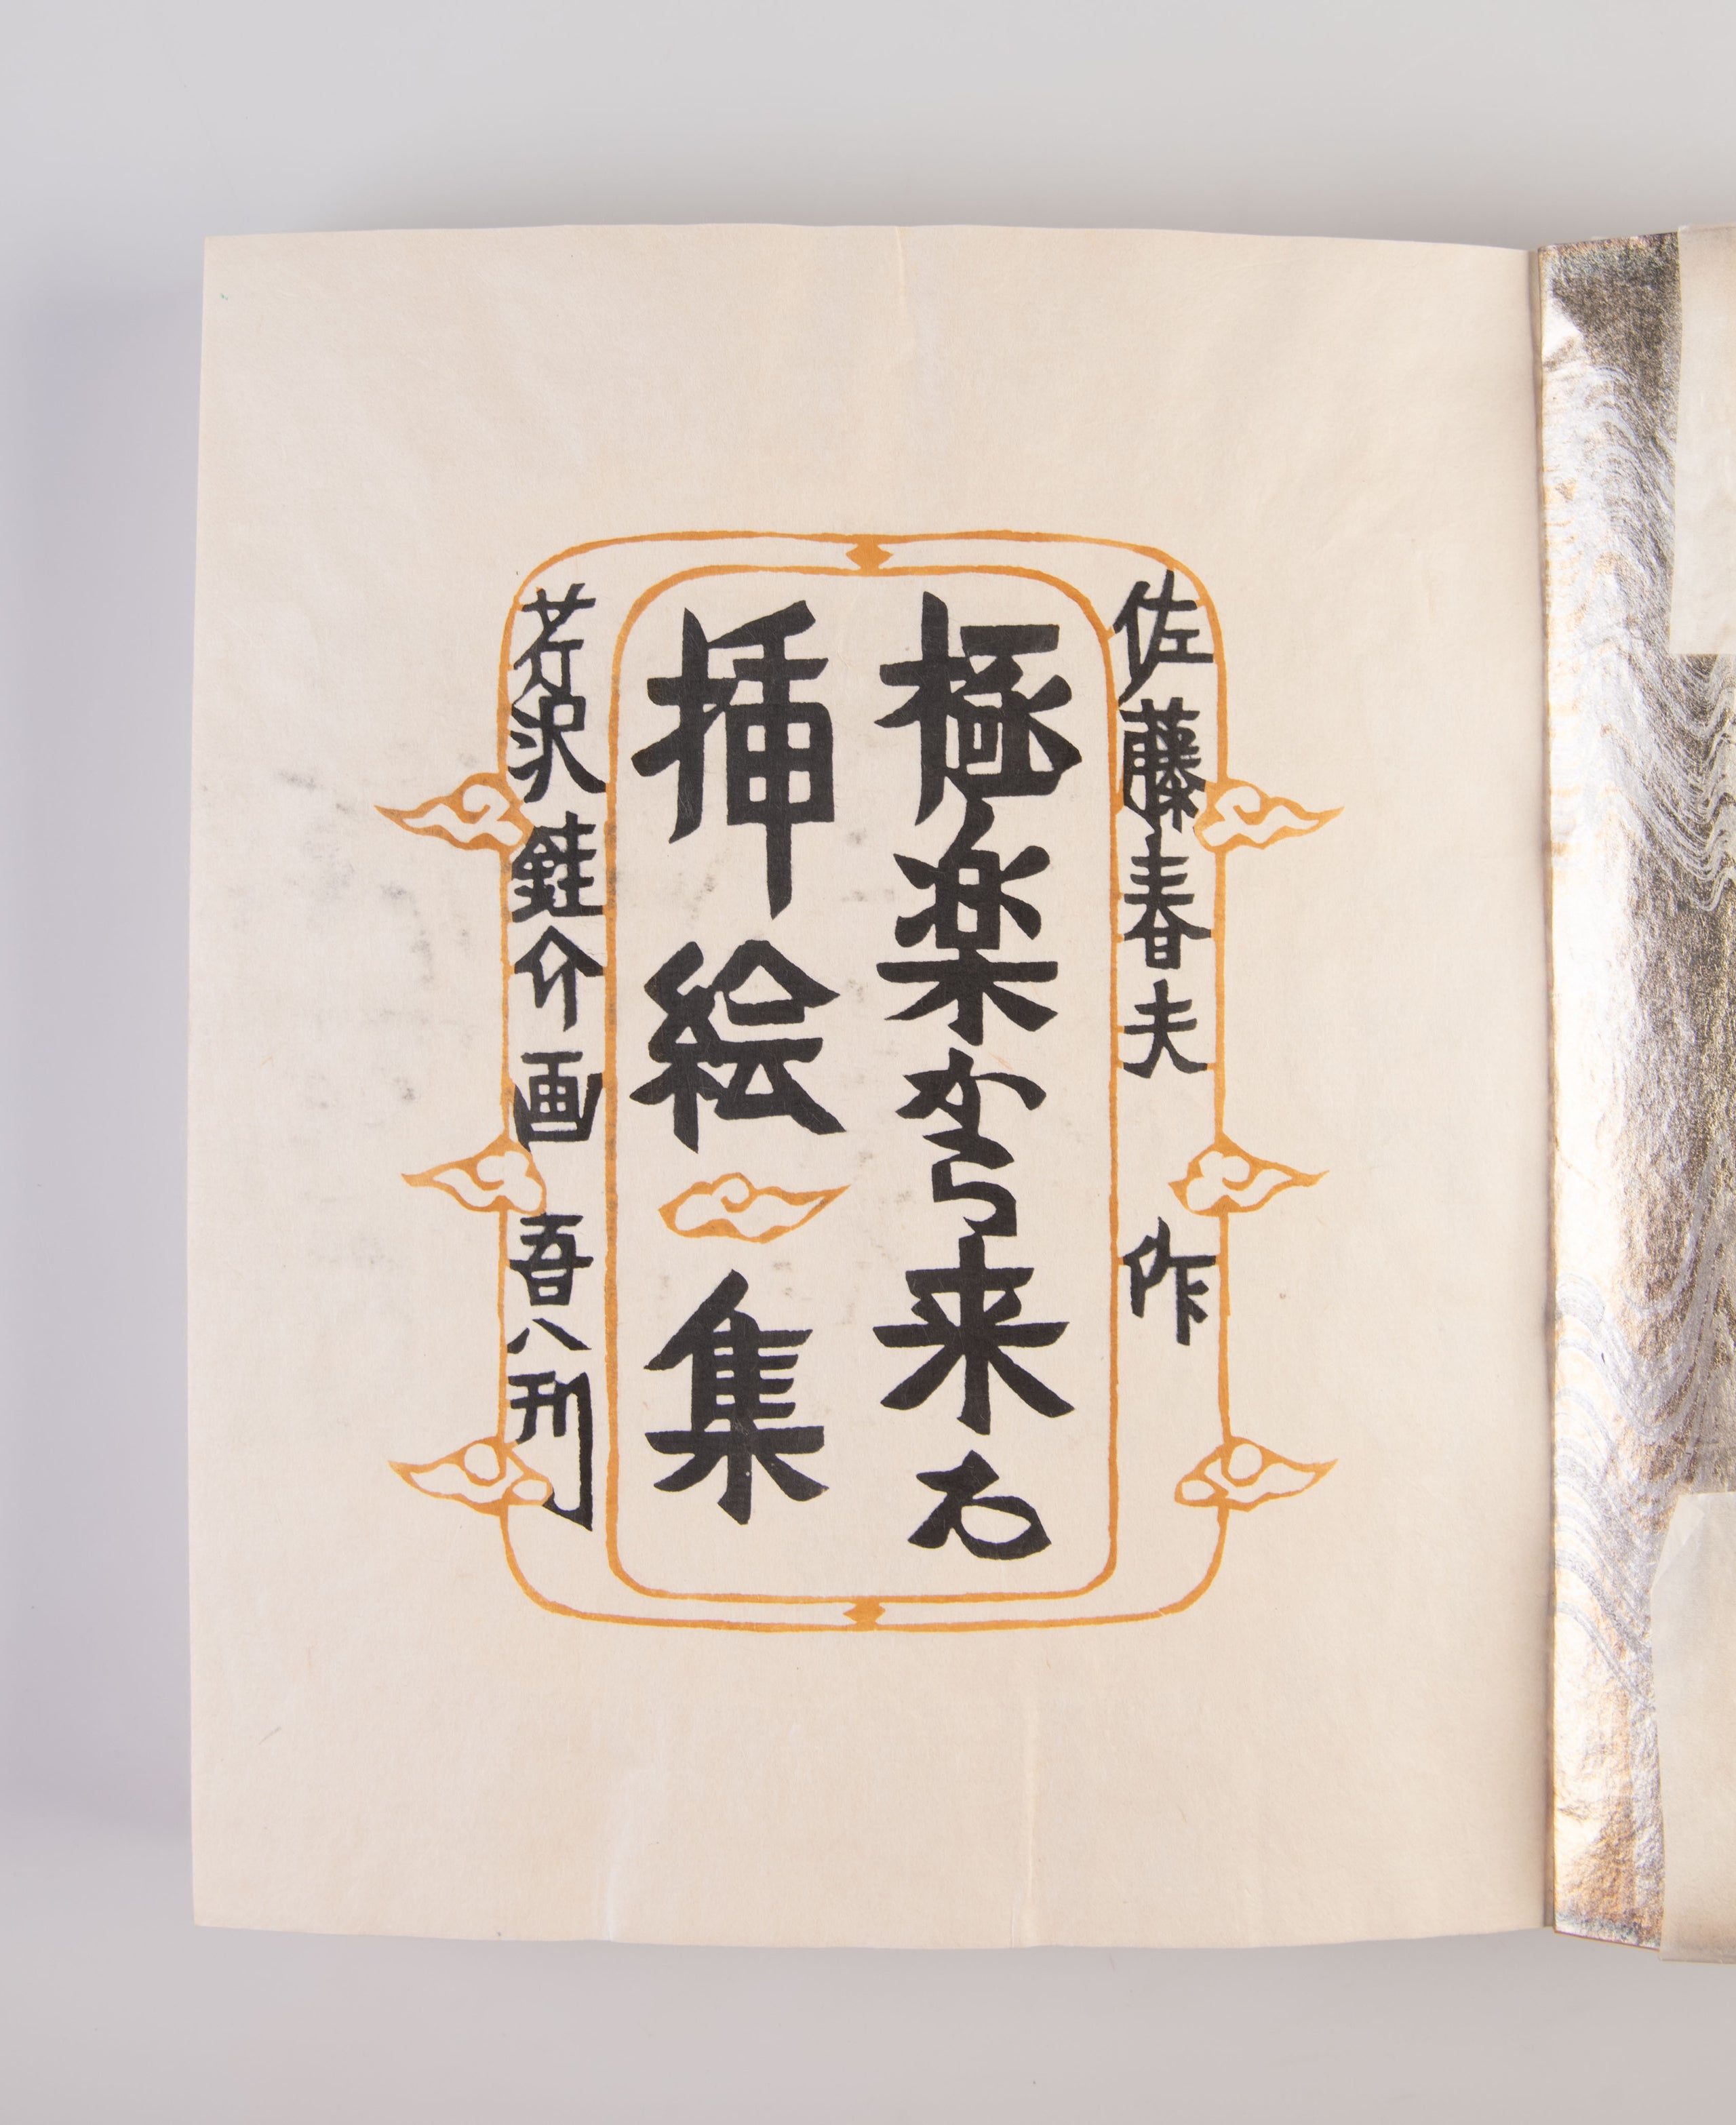 佐藤春夫 作
極楽から来た
挿絵集
芹沢銈介画 吾八刊